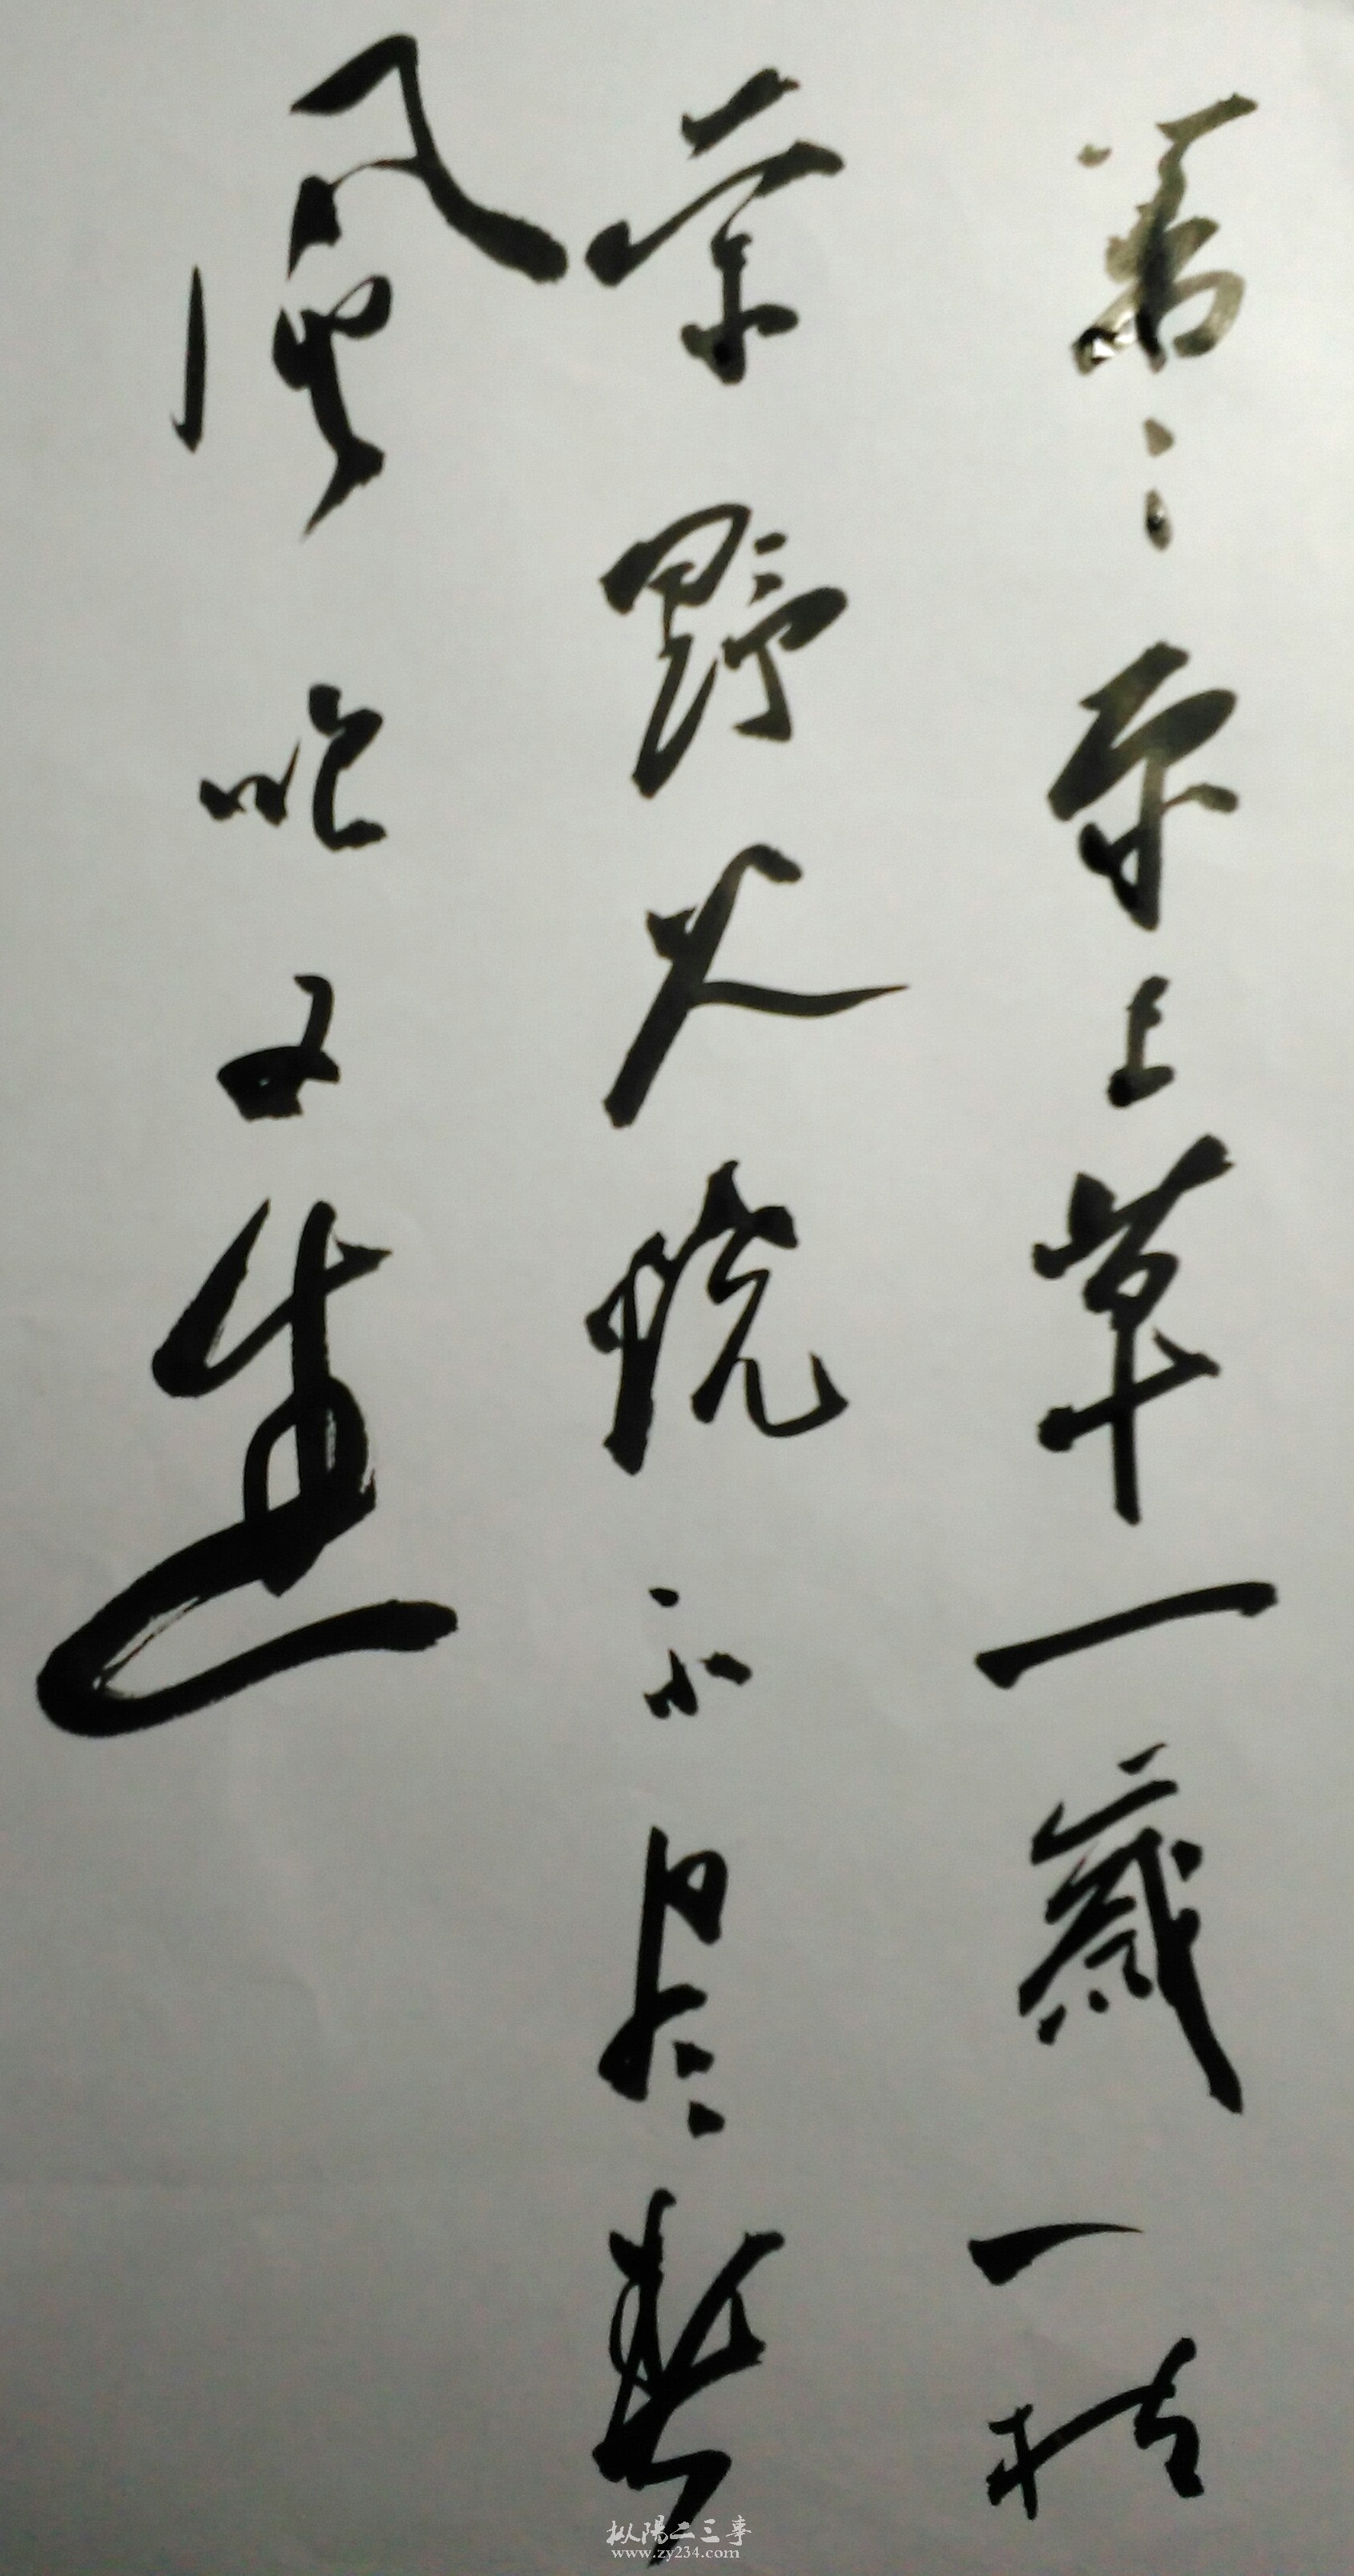 离〻原上草一歲一枯
荣野火烧不尽春
風吹又生
枞陽二三事
www.zy234.com